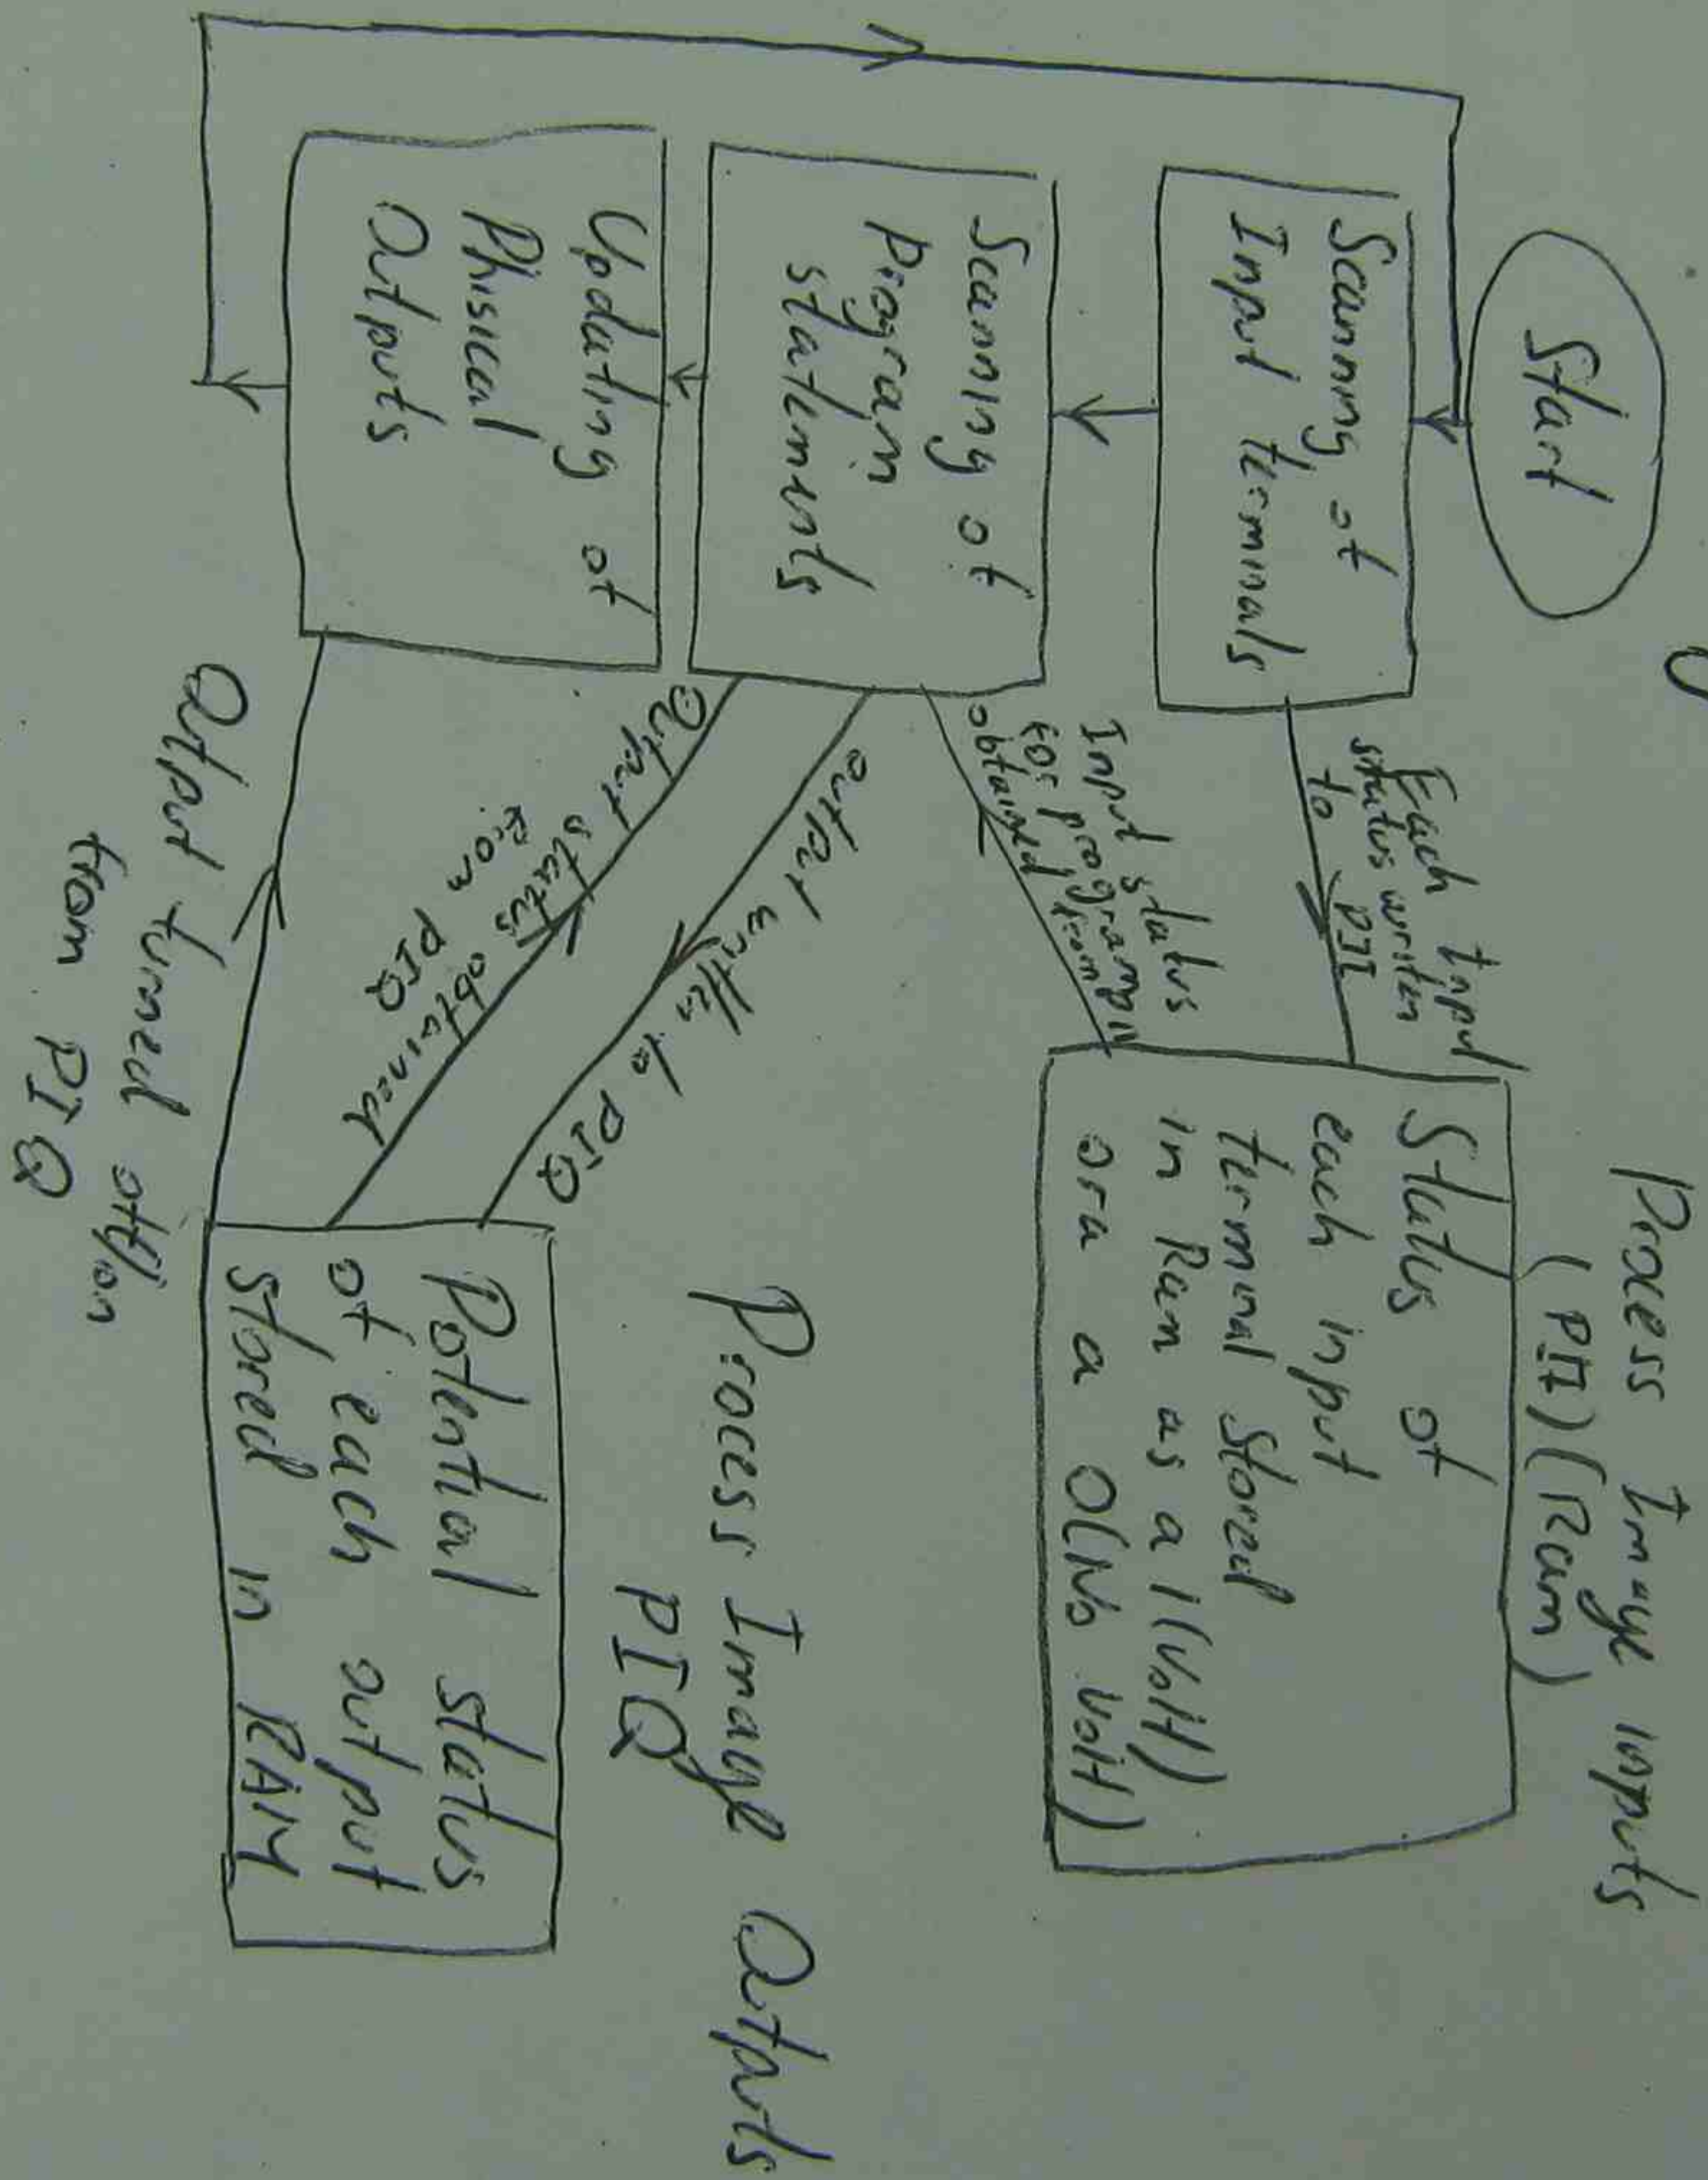 Start
Scanning of
Input terminals
Scanning of
program
statements
Updating of
Phisical
Outputs
Each Input
status writen
to PII
Input status
for program
obtained from PII
output written to PIQ
Output status obtained
from PIQ
Output turned off/on
from PIQ
Process Image inputs
(PII) (Ram)
Status of
each input
terminal stored
in Ram as a 1(Volt)
ora a 0(No Volt)
Process Image Outputs
PIQ
Potential status
of each output
stored in RAM